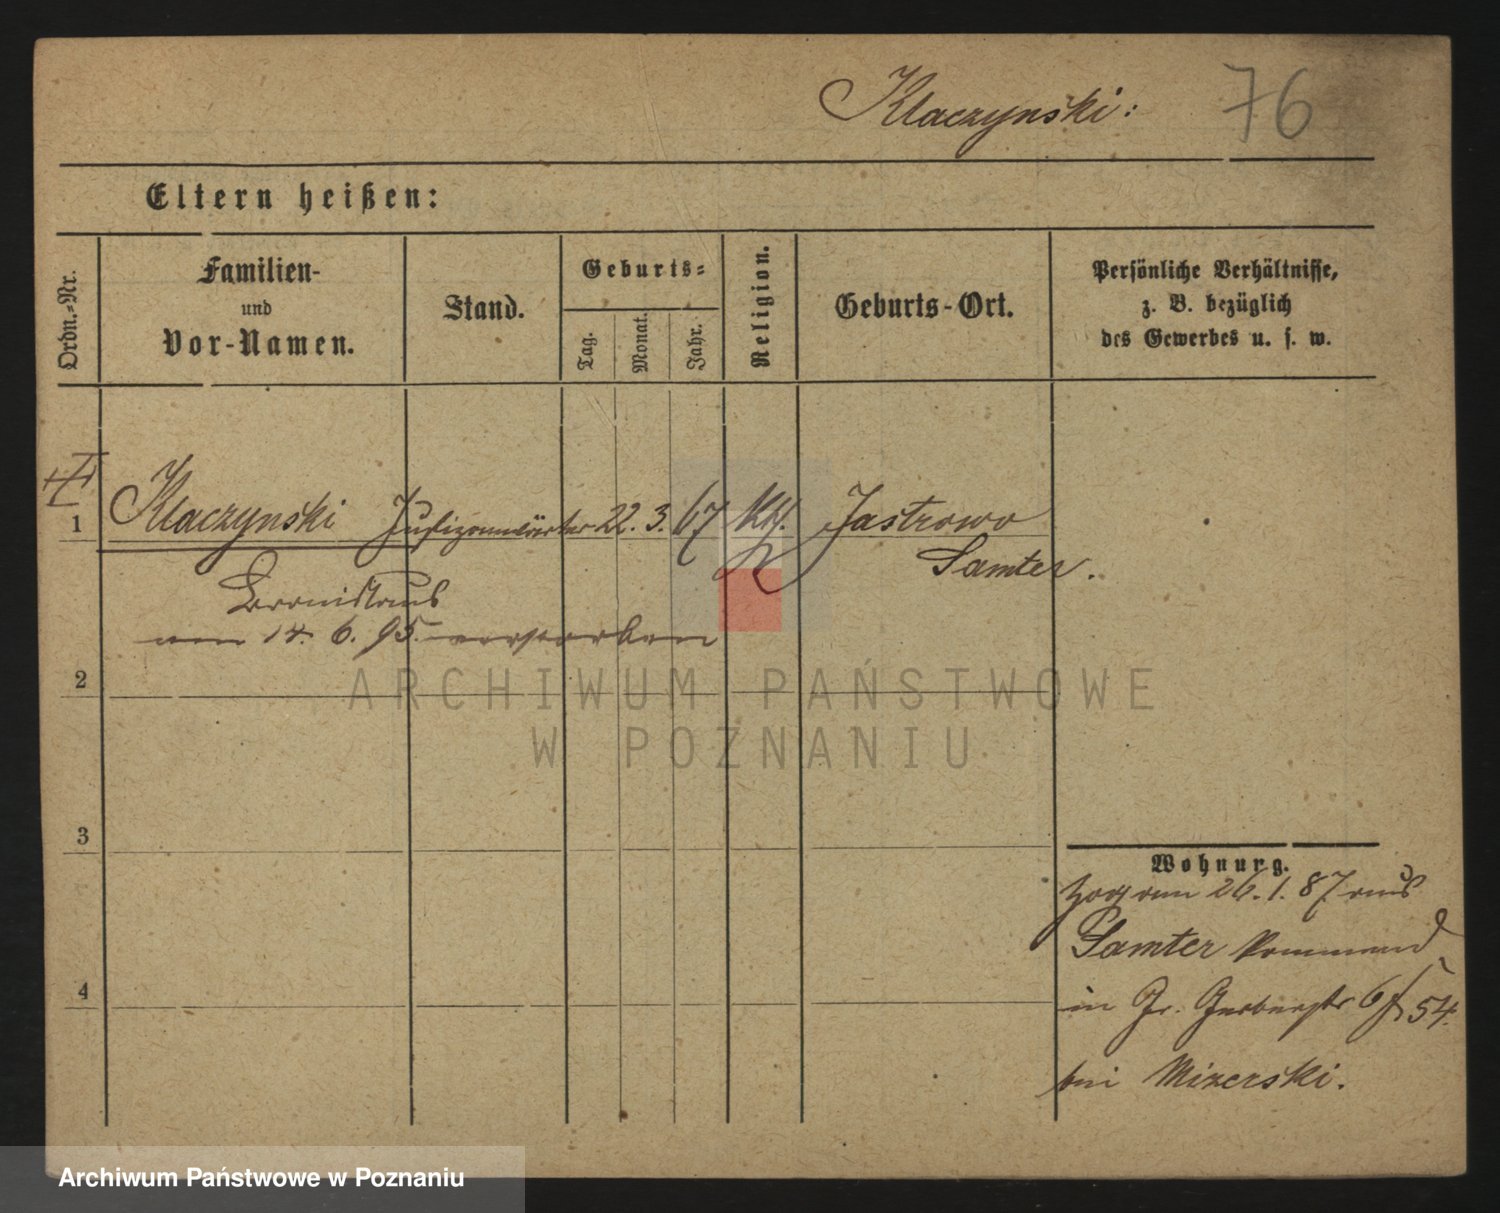 Klaczynski:
76
Eltern heißen:
Ordn.-Nr.
Familien-
und
Vor-Namen.
Stand.
Geburts-
Tag.
Monat.
Jahr.
Religion.
Geburts-Ort.
Persönliche Verhältnisse,
z. B. bezüglich
des Gewerbes u. s. w.
1 Klaczynski Justizanwärter 22. 3. 67 Kth. Jastrowo
Samter.
Bronislaus
am 14. 6. 95. verstorben
2
ARCHIWUM PAŃSTWOWE
W POZNANIU
3
Wohnung.
zog am 26. 1. 87 aus
Samter kommend
4
in Gr. Gerberstr 6 54.
bei Mizerski.
Archiwum Państwowe w Poznaniu